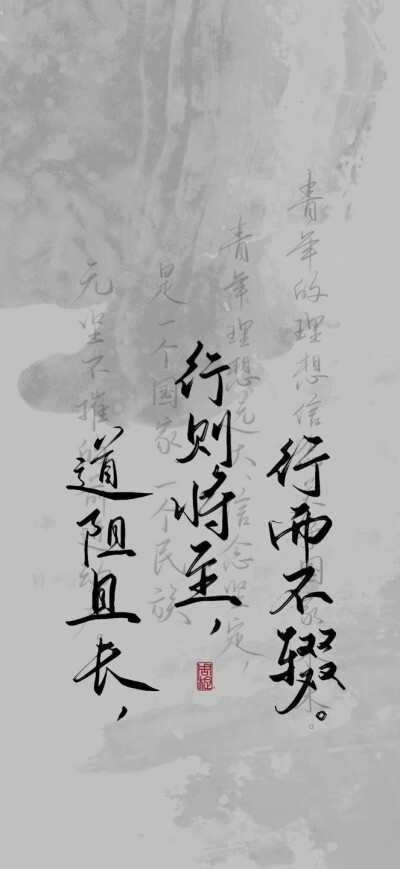 道阻且长，
行则将至，
行而不辍。
青年的理想信
青年理想远大、信念坚定，
是一个国家、一个民族
无坚不摧的前